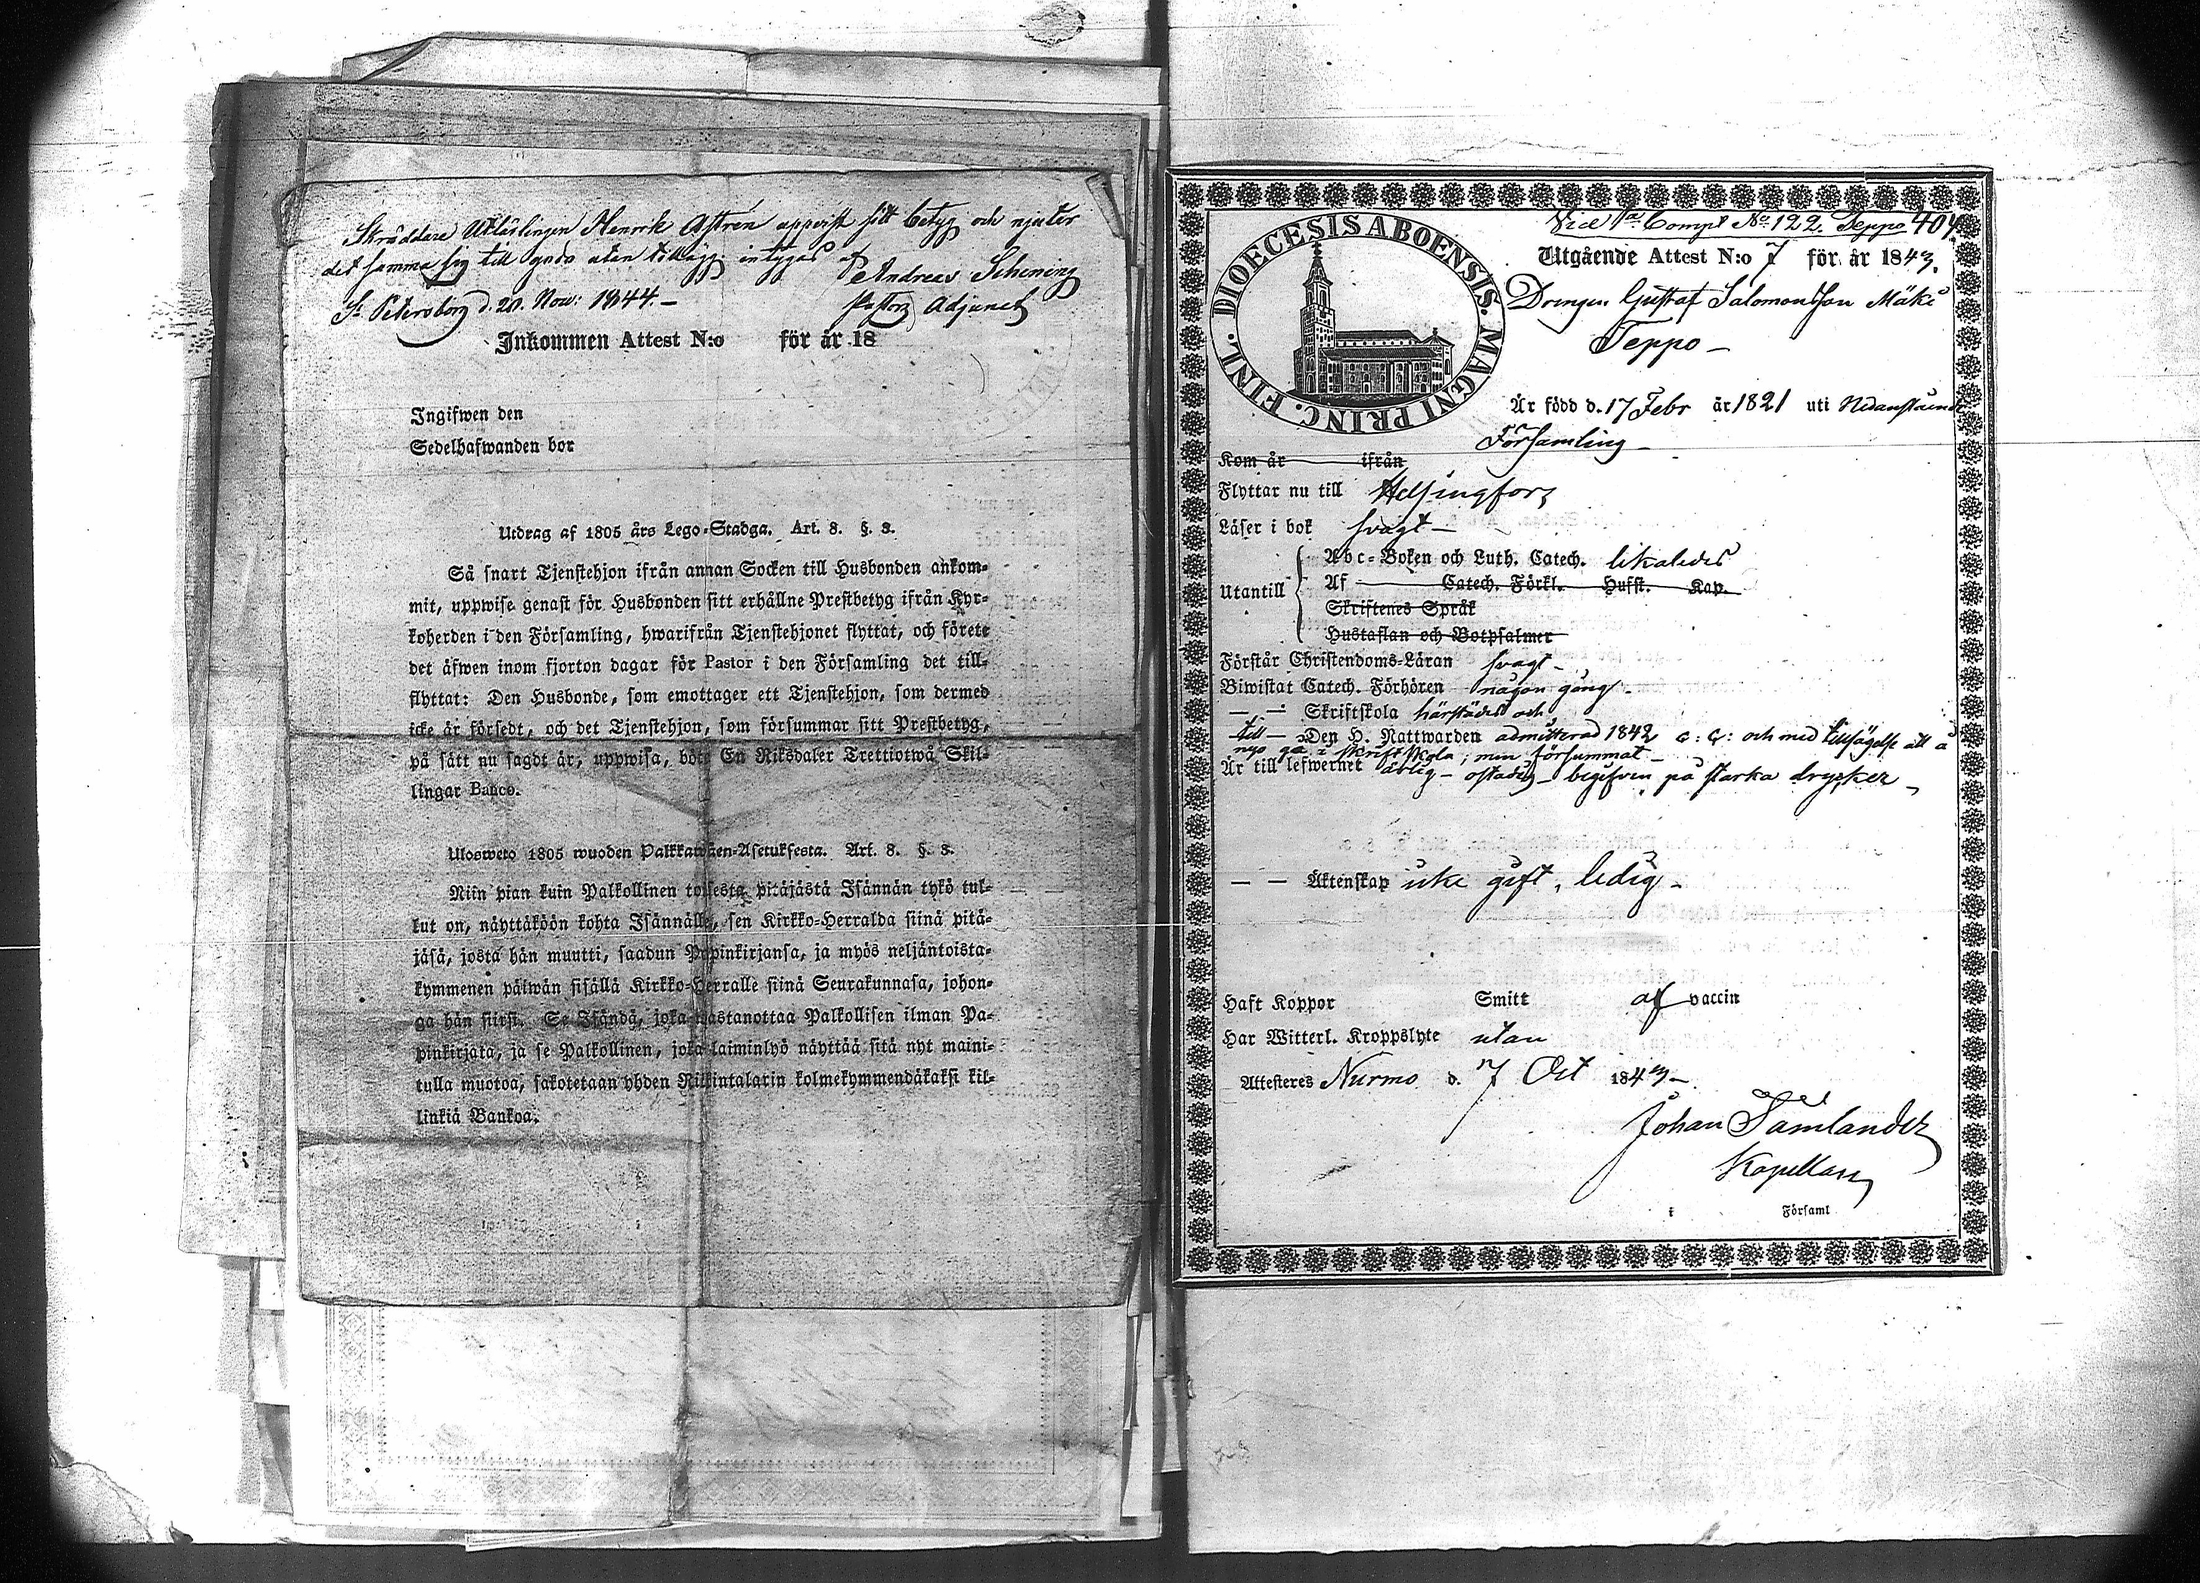 Skräddare Utlärlingen Henrik Astrén uppvist sitt betyg och njuter
det samma sig till godo utan tillägg, intygas af
Andreas Schening
St Petersborg d. 20. Nov: 1844.-
Pastors Adjunct
Inkommen Attest N:o för år 18
Ingifwen den
Sedelhafwanden bor
Utdrag af 1805 års Lego-Stadga. Art. 8. §. 3.
Så snart Tjenstehjon ifrån annan Socken till Husbonden ankom-
mit, uppwise genast för Husbonden sitt erhållne Prestbetyg ifrån Kyr-
koherden i den Församling, hwarifrån Tjenstehjonet flyttat, och förete
det äfwen inom fjorton dagar för Pastor i den Församling det till-
flyttat: Den Husbonde, som emottager ett Tjenstehjon, som dermed
icke är försedt, och det Tjenstehjon, som försummar sitt Prestbetyg,
på sätt nu sagdt är, uppwisa, böte En Riksdaler Trettiotwå Skil-
lingar Banco.
Ulosweto 1805 wuoden Palkkawäen-Asetuksesta. Art. 8. §. 3.
Niin pian kuin Palkollinen toisesta pitäjästä Isännän tykö tul-
lut on, näyttäköön kohta Isännälle, sen Kirkko-Herralda siinä pitä-
jäsä, josta hän muutti, saadun Papinkirjansa, ja myös neljäntoista-
kymmenen päiwän sisällä Kirkko-Herralle siinä Seurakunnasa, johon-
ga hän siirsi. Se Isändä, joka wastanottaa Palkollisen ilman Pa-
pinkirjata, ja se Palkollinen, joka laiminlyö näyttää sitä nyt maini-
tulla muotoa, sakotetaan yhden Riikintalarin kolmekymmendäkaksi kil-
linkiä Bankoa.
DIOECESIS ABOENSIS. MAGNI PRINC. FINL.
Vice Pa Compt No 122. Teppo 404.
Utgående Attest N:o 7 för år 1843.
Drengen Gustaf Salomonsson Mäki
Teppo -
Är född d. 17 Febr år 1821 uti Nedanstående
Församling -
Kom år ifrån
Flyttar nu till Helsingfors
Läser i bok svagt -
Utantill
Abc-Boken och Luth. Catech. likaledes
Af Catech. Förkl. Husst. Kap.
Skriftenes Språk
Hustaflan och Botpsalmer
Förstår Christendoms-Läran svagt -
Biwistat Catech. Förhören någon gång -
— — Skriftskola härstädes och
till — Den H. Nattwarden admitterad 1842 och med tillsägelse att å
nyo gå i Skriftskola; men försummat -
Är till lefwernet ärlig - ostadig - begifven på starka drycker -
— — Äktenskap icke gift, ledig -
Haft Koppor Smitt af vaccin
Har Witterl. Kroppslyte utan
Attesteres Nurmo d. 7 Oct 1843 -
Johan Tämlander
Kapellan
i Församl